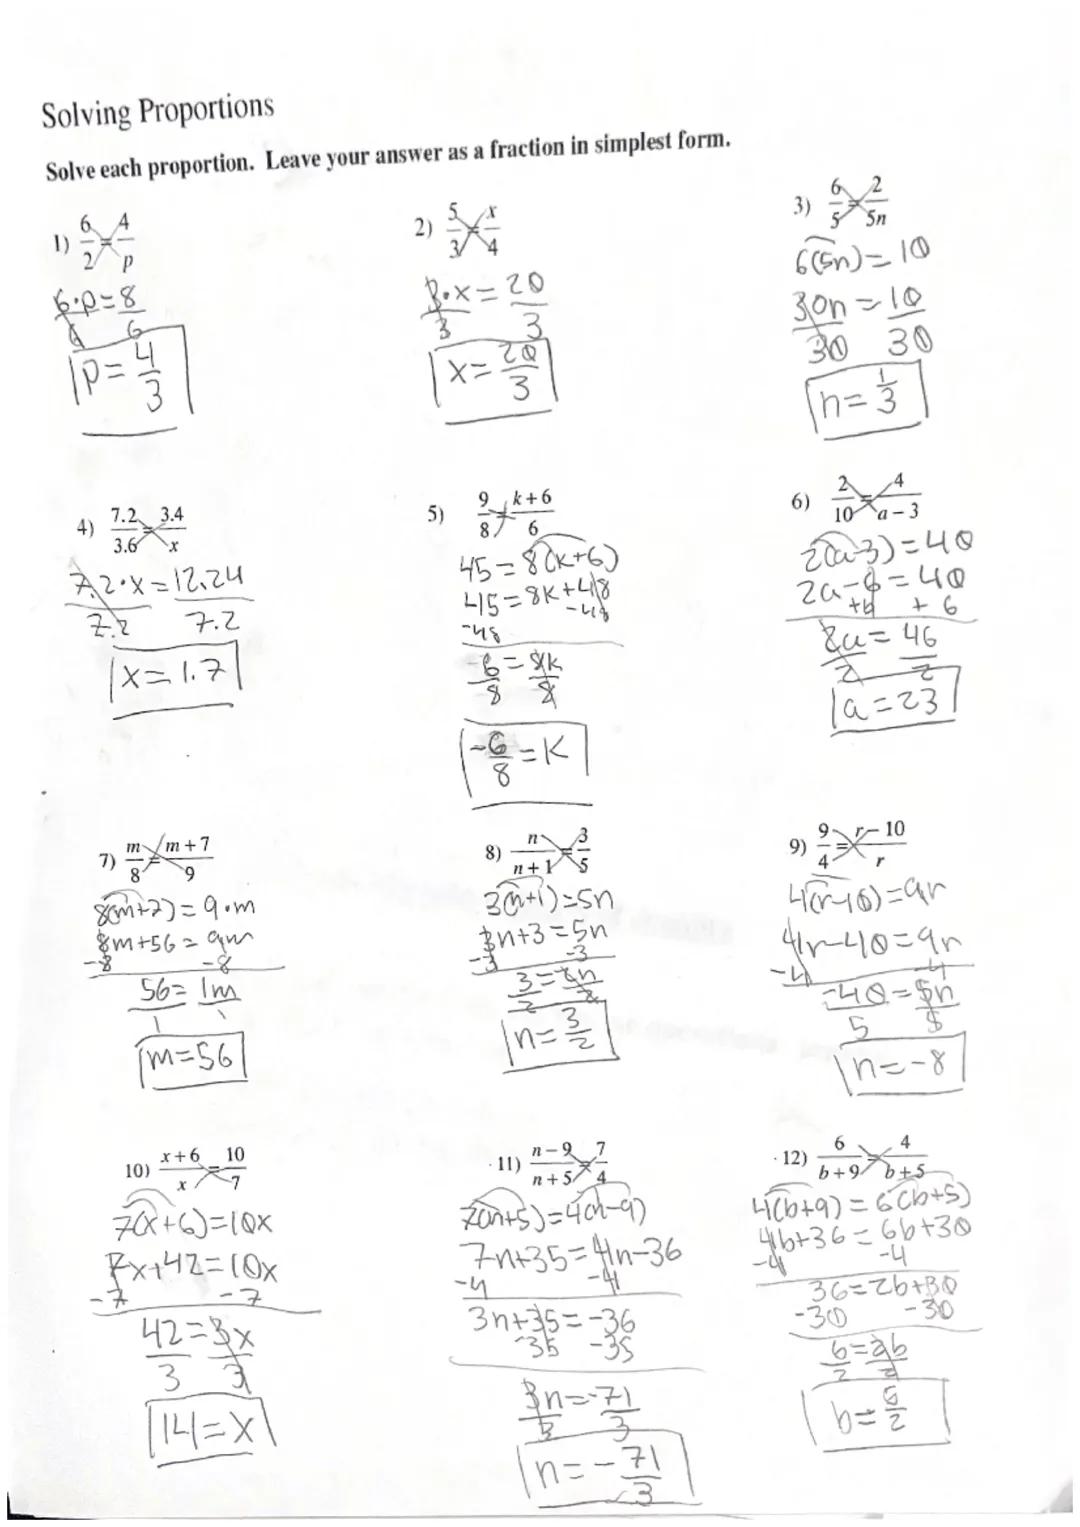 Solving Proportions
Solve each proportion. Leave your answer as a fraction in simplest form.
1) 6/2 = 4/p
6·p=8
6 6
p= 4/3
2) 5/3 = x/4
3·x= 20
3 3
x= 20/3
3) 6/5 = 2/5n
6(5n)= 10
30n = 10
30 30
n= 1/3
4) 7.2/3.6 = 3.4/x
7.2·x=12.24
7.2 7.2
x= 1.7
5) 9/8 = k+6/6
45=8(k+6)
45=8k+48
-48 -48
-6 = 8k
8 8
-6/8 = k
6) 2/10 = 4/a-3
2(a-3)=40
2a-6=40
+6 +6
2a= 46
2 2
a=23
7) m/8 = m+7/9
8(m+7)= 9·m
8m+56= 9m
-8 -8
56= 1m
1 1
m=56
8) n/n+1 = 3/5
3(n+1)=5n
3n+3=5n
-3 -3
3=2n
2 2
n= 3/2
9) 9/4 = r-10/r
4(r-10)=9r
4r-40=9r
-4 -4
-40=5n
5 5
n=-8
10) x+6/x = 10/7
7(x+6)=10x
7x+42=10x
-7 -7
42=3x
3 3
14=x
11) n-9/n+5 = 7/4
7(n+5)=4(n-9)
7n+35=4n-36
-4 -4
3n+35=-36
-35 -35
3n=-71
3 3
n=- 71/3
12) 6/b+9 = 4/b+5
4(b+9)=6(b+5)
4b+36=6b+30
-4 -4
36=2b+30
-30 -30
6=2b
2 2
b= 6/2